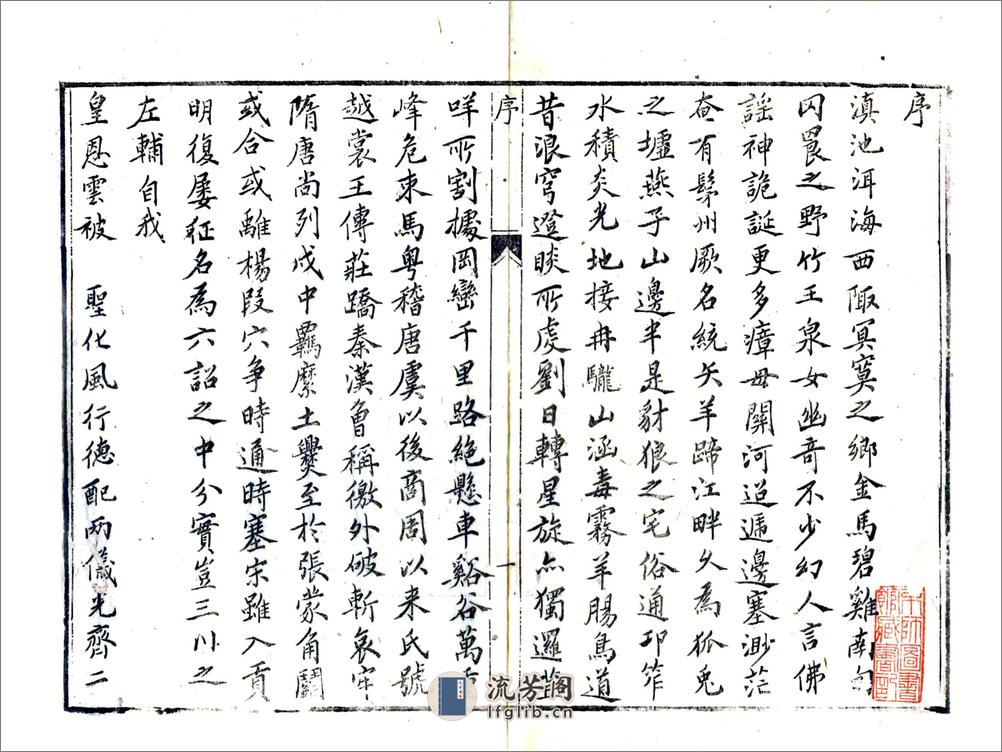 序
滇池洱海西陬冥寞之鄉金馬碧雞南
囚閬之野竹王泉女幽奇不少幻人言佛
謡神詭誕更多瘴母關河迢遞邊塞渺茫
奄有髳州厥名統矢羊蹄江畔久為狐兎
之墟燕子山邊半是豺狼之宅俗通邛笮
水積炎光地接冉駹山涵毒霧羊腸鳥道
昔浪穹邆睒所處劉日轉星旋亦獨邏
序
一
咩所割據岡巒千里路絕懸車谿谷萬
峰危束馬粵稽唐虞以後商周以来氏號
越裳王傳莊蹻秦漢曾稱徼外破斬哀牢
隋唐尚列戍中羈縻土爨至於張蒙角鬬
或合或離楊叚穴争時通時塞宋雖入貢
明復屡征名為六詔之中分實豈三川之
左輔自我
皇恩雲被 聖化風行德配兩儀光齊二
流芳阁
lfglib.cn